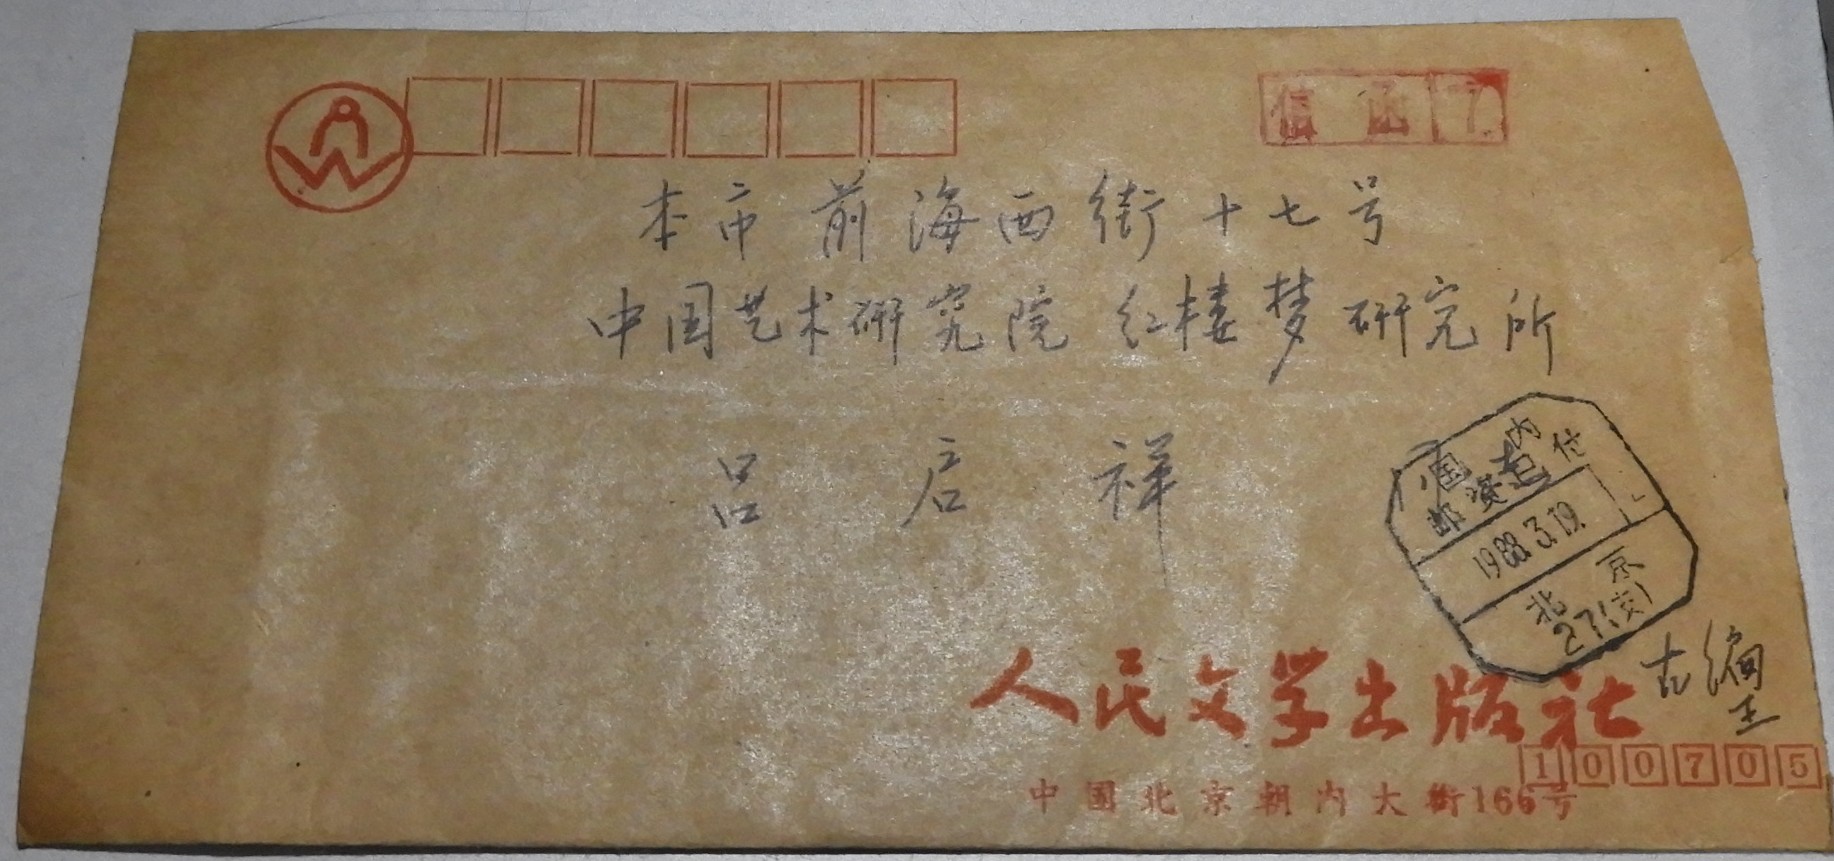 信函 7
本市前海西街十七号
中国艺术研究院 红楼梦研究所
吕启祥
国内
邮资已付
1988.3.19.
北京
27(支)
人民文学出版社 古编
王
100705
中国北京朝内大街166号